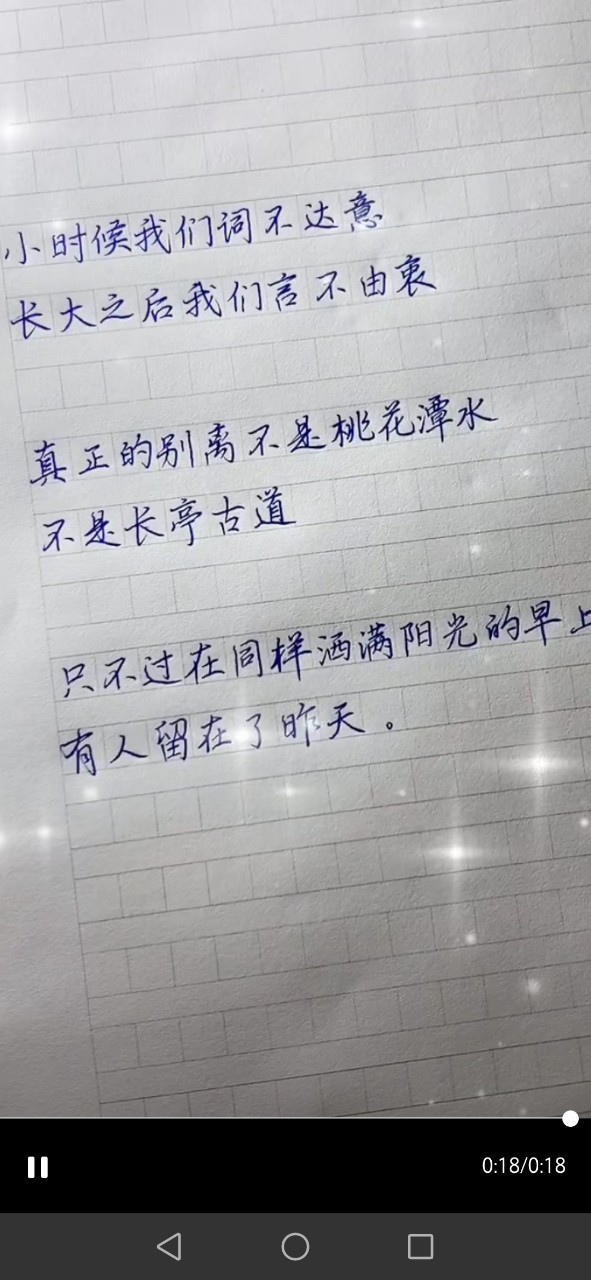 小时候我们词不达意
长大之后我们言不由衷
真正的别离不是桃花潭水
不是长亭古道
只不过在同样洒满阳光的早上
有人留在了昨天。
0:18/0:18